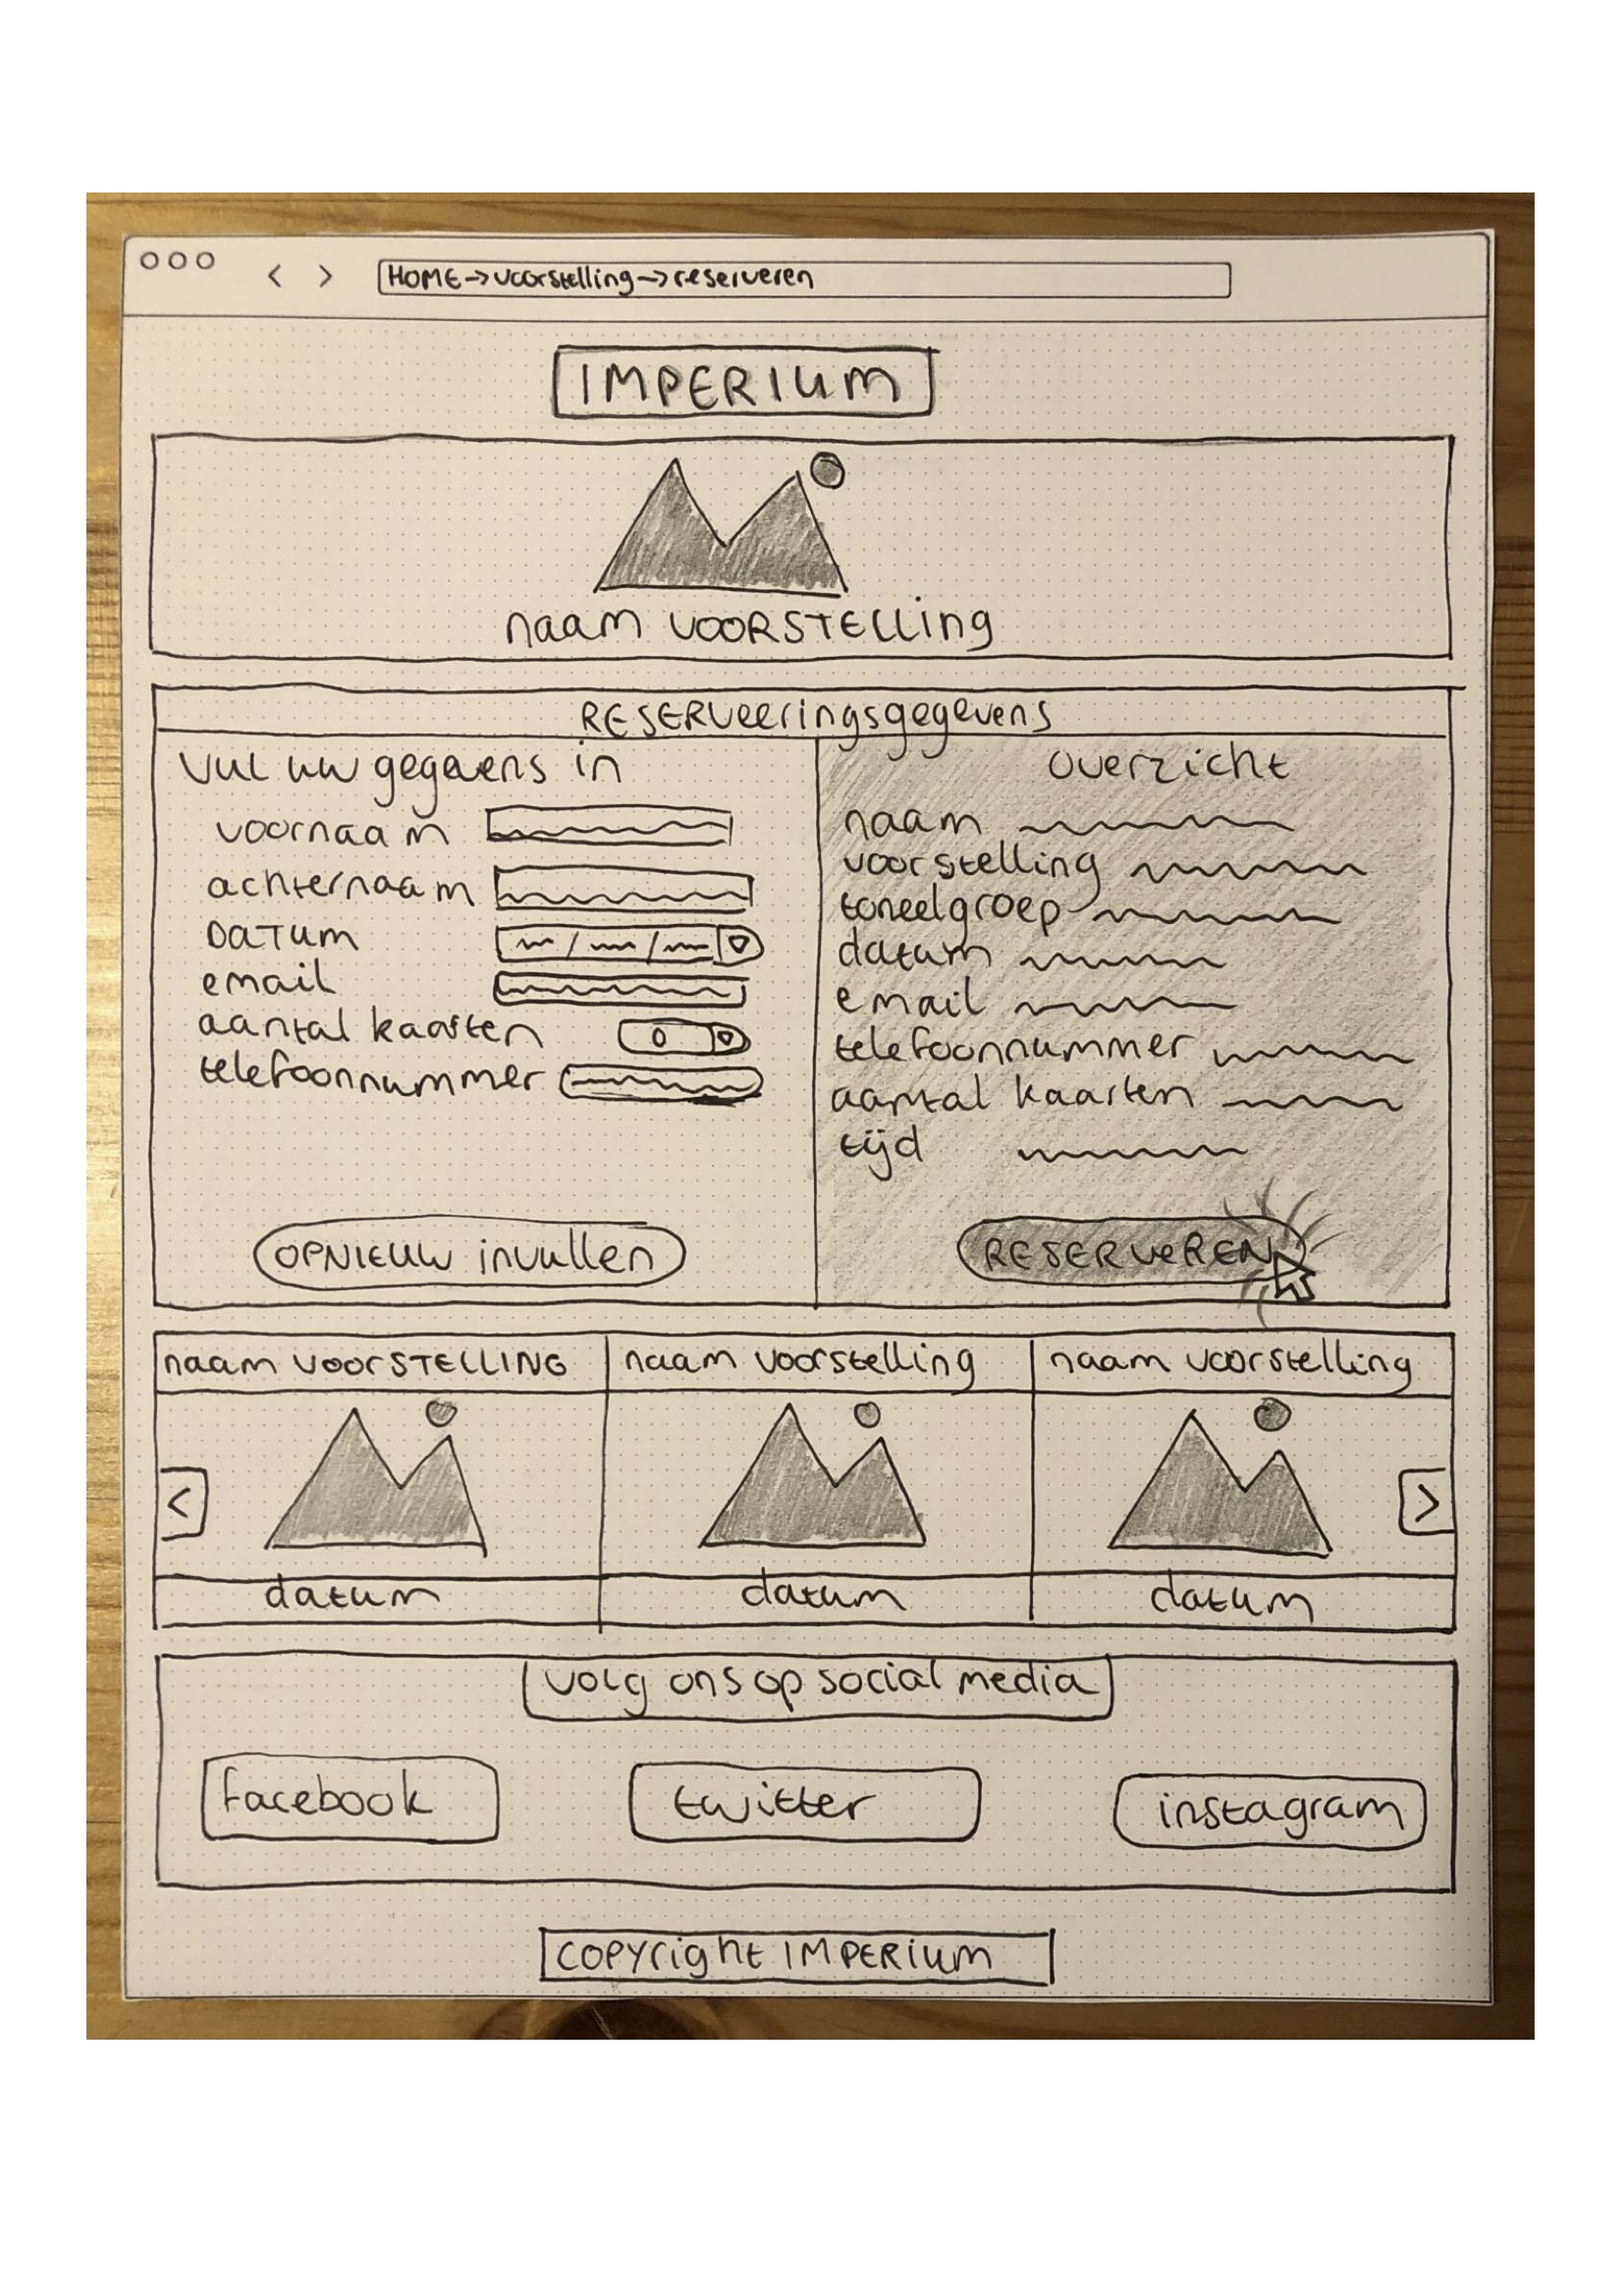 HOME->voorstelling->reserveren
IMPERIUM
naam VOORSTELLing
RESERVeeringsgegevens
Vul uw gegevens in
voornaam
achternaam
DATUM
email
aantal kaarten
0
telefoonnummer
OPNIEUW invullen
overzicht
naam
voorstelling
toneelgroep
datum
email
telefoonnummer
aantal kaarten
tijd
RESERVEREN
naam voorSTELLING
naam voorstelling
naam voorstelling
datum
datum
datum
volg ons op social media
facebook
twitter
instagram
copyright IMPERIUM